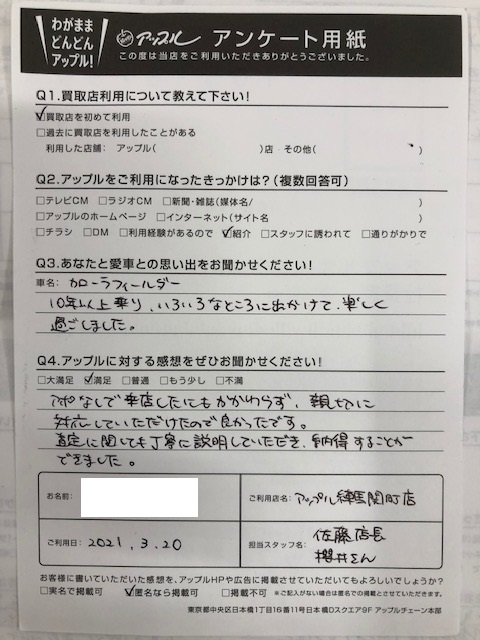 わがまま
どんどん
アップル!
アップル アンケート用紙
この度は当店をご利用いただきありがとうございました。
Q1.買取店利用について教えて下さい!
☑買取店を初めて利用
□過去に買取店を利用したことがある
利用した店舗: アップル( )店 その他( )
Q2.アップルをご利用になったきっかけは?(複数回答可)
□テレビCM □ラジオCM □新聞・雑誌(媒体名/ )
□アップルのホームページ □インターネット(サイト名 )
□チラシ □DM □利用経験があるので ☑紹介 □スタッフに誘われて □通りがかりで
Q3.あなたと愛車との思い出をお聞かせください!
車名: カローラフィールダー
10年以上乗り、いろいろなところに出かけて、楽しく
過ごしました。
Q4.アップルに対する感想をぜひお聞かせください!
□大満足 ☑満足 □普通 □もう少し □不満
アポなしで来店したにもかかわらず、親切に
対応していただけたので良かったです。
査定に関しても丁寧に説明していただき、納得することが
できました。
お名前:
ご利用店名: アップル練馬関町店
ご利用日: 2021.3.20
担当スタッフ名: 佐藤店長
櫻井さん
お客様に書いていただいた感想を、アップルHPや広告に掲載させていただいてもよろしいでしょうか?
□実名で掲載可 ☑匿名なら掲載可 □掲載不可 ※ご記入がない場合は匿名での掲載とさせていただきます。
東京都中央区日本橋1丁目16番11号日本橋Dスクエア9F アップルチェーン本部